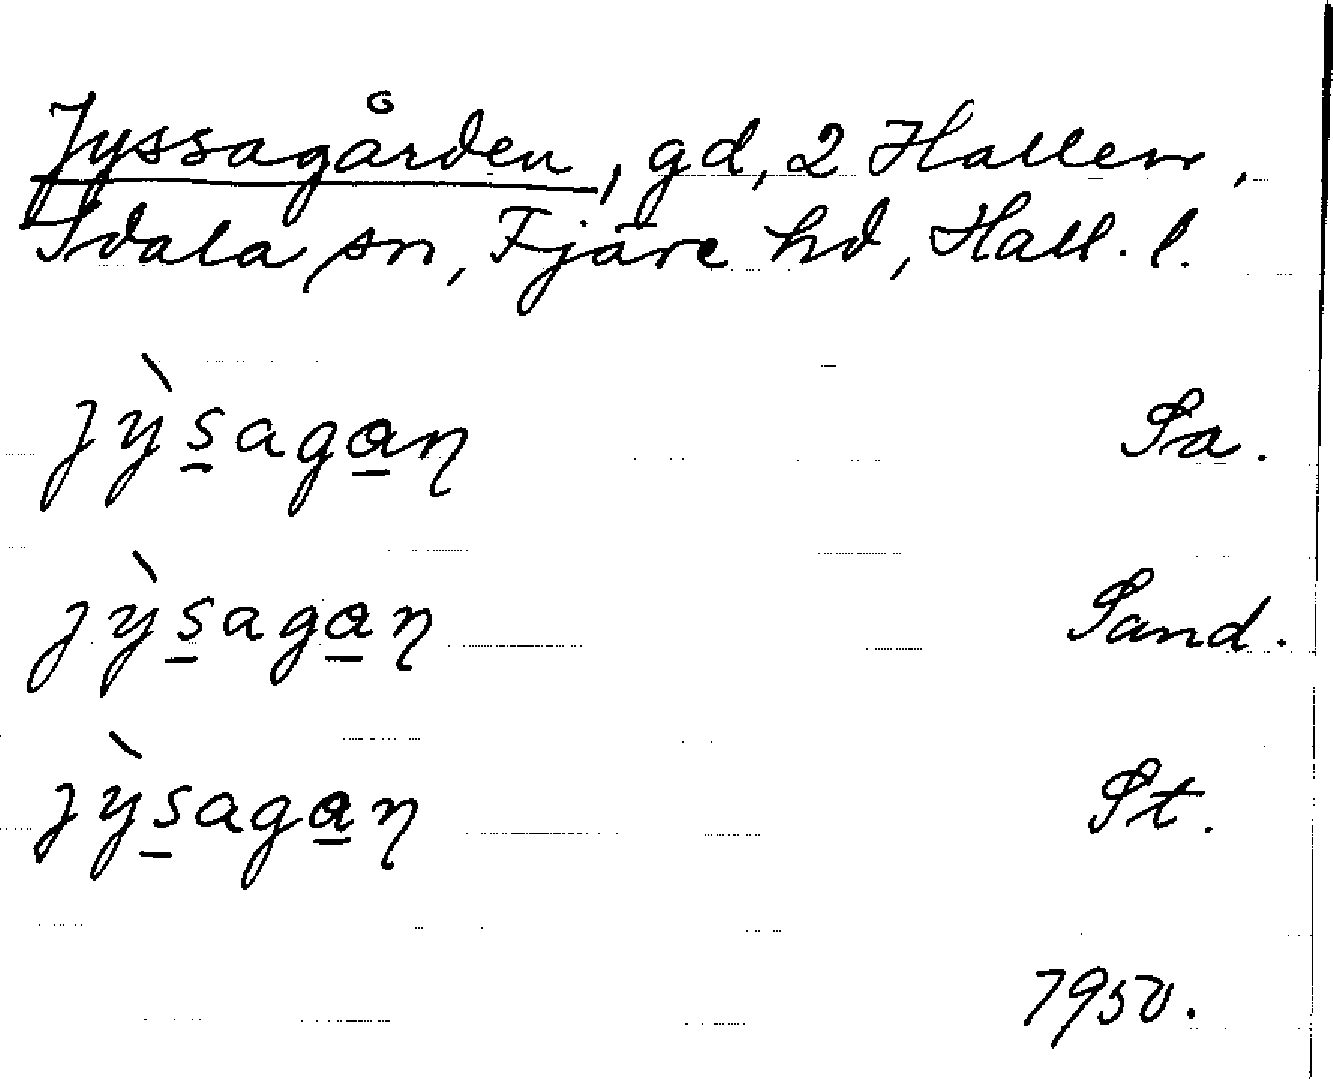 Jyssagården, gd, 2 Hallen,
Idala sn, Fjäre hd, Hall. l.
jỳs̲aga̲ŋ Sa.
jỳs̲aga̲ŋ Sand.
jỳs̲aga̲ŋ St.
1950.